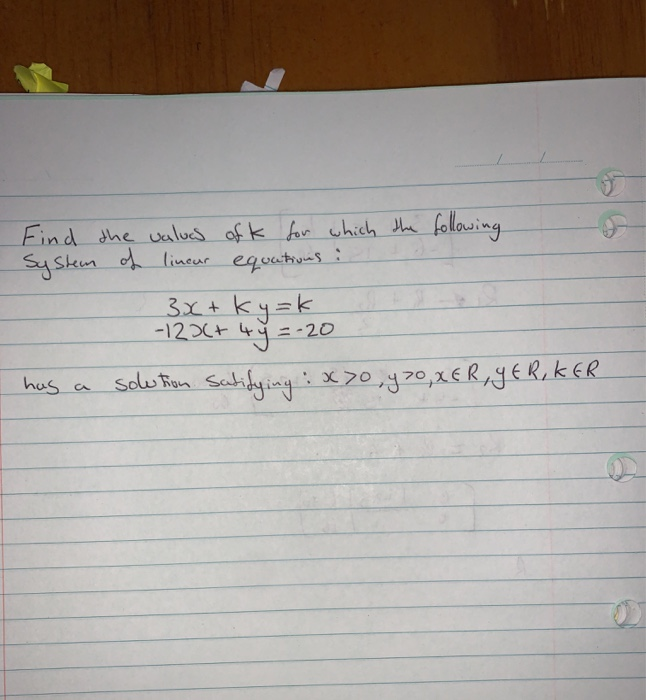 Find the values of k for which the following
System of linear equations :
3x + ky = k
-12x + 4y = -20
has a solution Satifying : x > 0, y > 0, x ∈ R, y ∈ R, k ∈ R